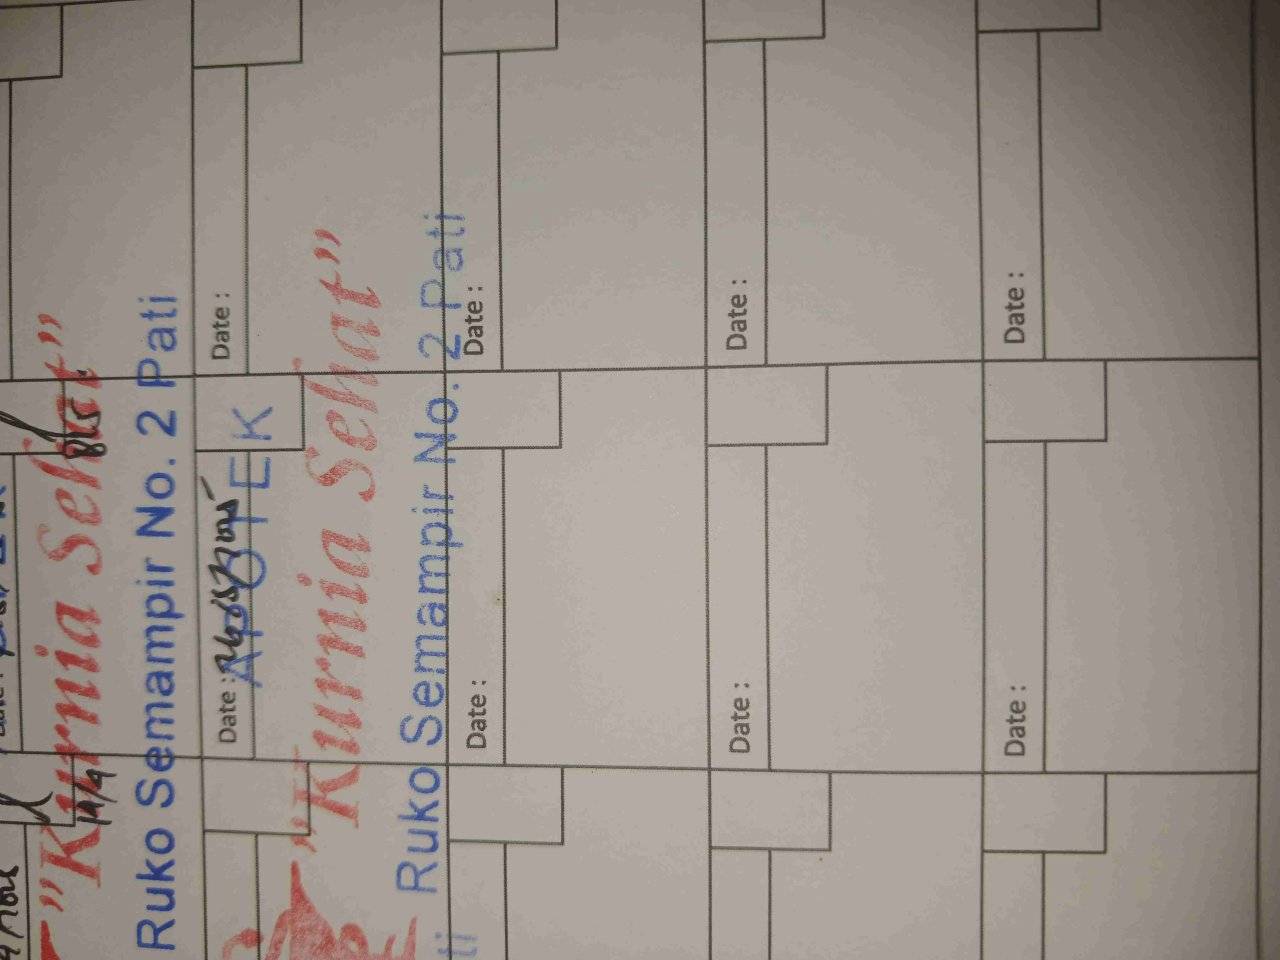 "Kurnia Sehat"
Ruko Semampir No. 2 Pati
14/4
Date :
Date :
APOTEK
"Kurnia Sehat"
Ruko Semampir No. 2 Pati
ti
Date :
Date :
Date :
Date :
Date :
Date :